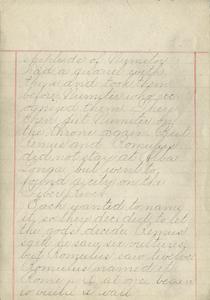 of Numitor
had a quarrel with
and took them
before Numitor who rec-
ognized them. They
then put Numitor on
the throne again. But
Remus and Romulus
did not stay at Alba
Longa but went to
found a city on the
Tiber river.
Each wanted to name
it, so they decided to let
the gods decide. Remus
said he saw six vultures,
but Romulus saw twelve.
Romulus named it
Rome, and at once began
to build a wall